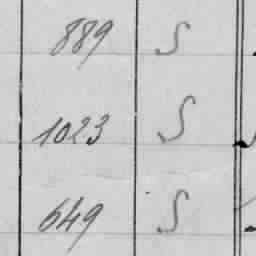 889 S
1023 S
649 S